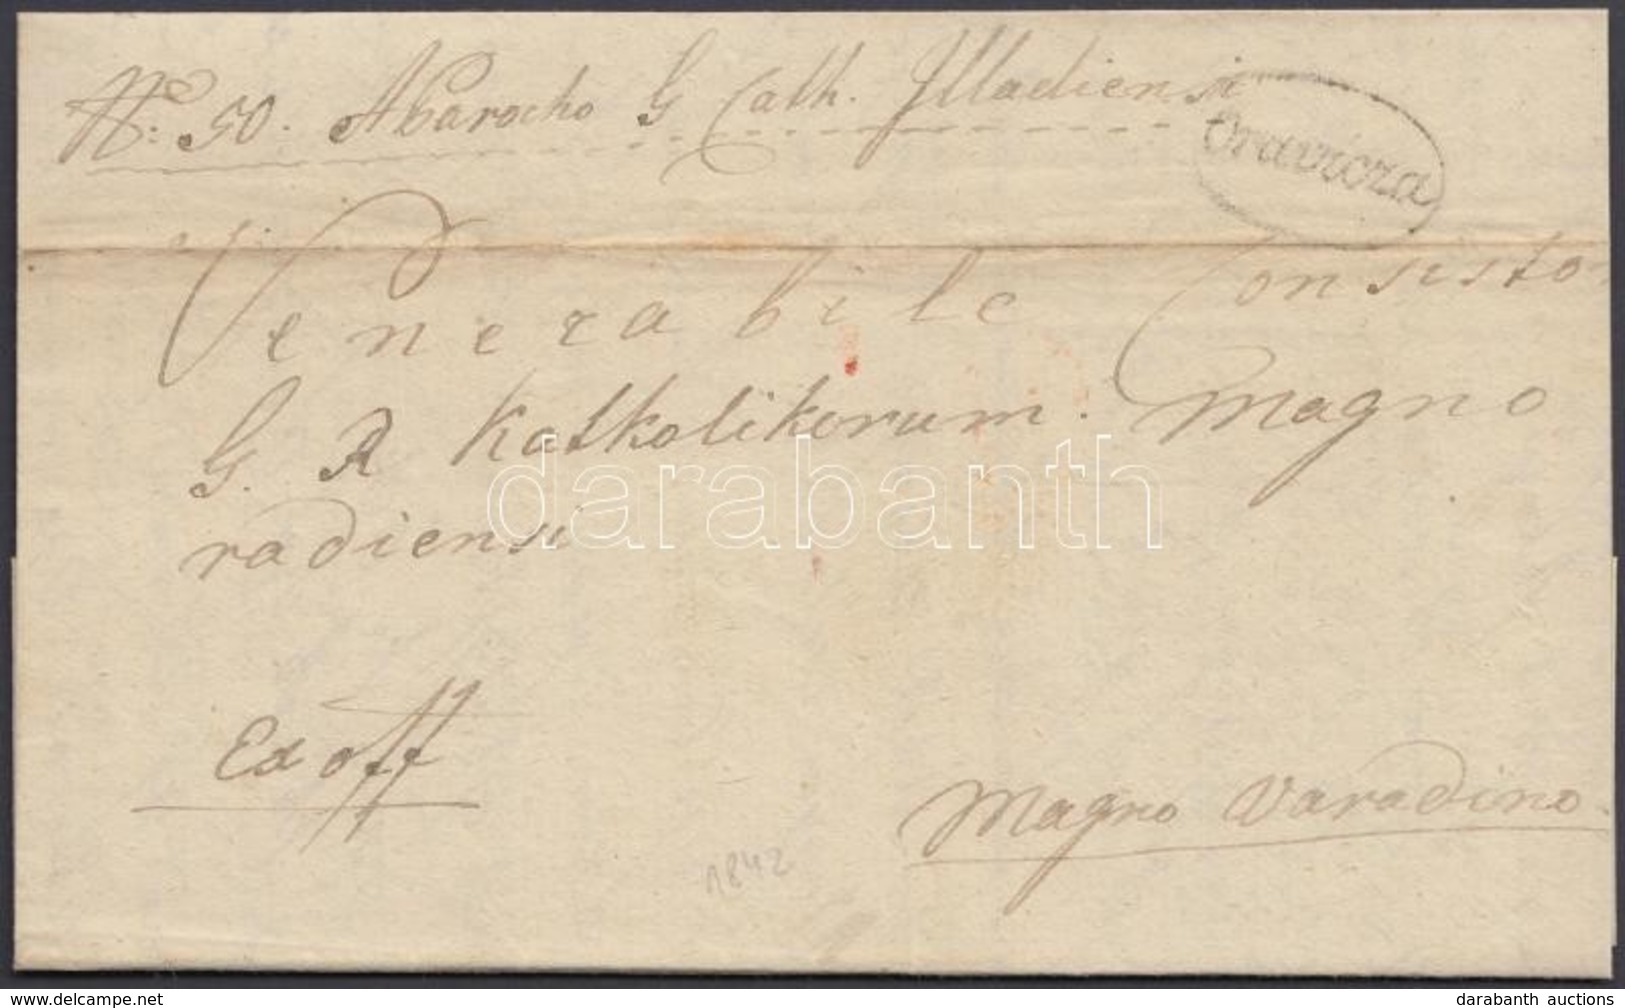 No: 50. A Parocho G Cath. Illadiensi
Oraviczza
Venerabile Consisto
G. R Katholikorum. Magno
radiensi
darabanth
Ex off
Magno Varadino.
1842
www.delcampe.net
darabanth auctions